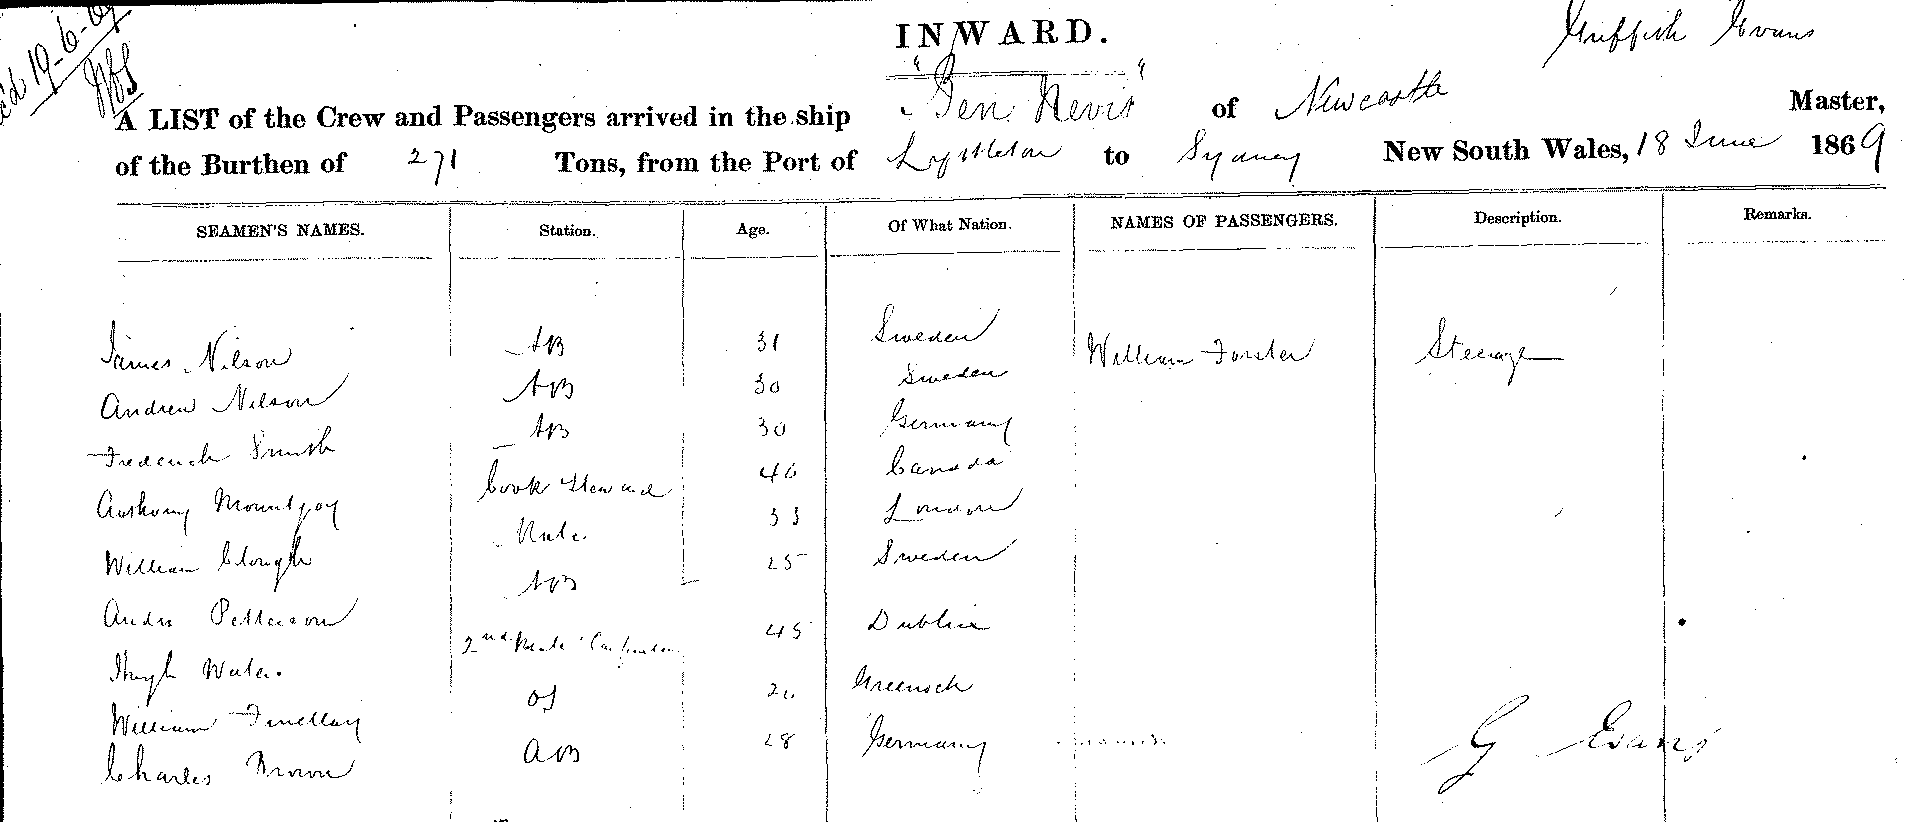 INWARD.
Griffith Evans
"Ben Nevis"
A LIST of the Crew and Passengers arrived in the ship Ben Nevis of Newcastle Master,
of the Burthen of 271 Tons, from the Port of Lyttleton to Sydney New South Wales, 18 June 1869
SEAMEN'S NAMES. Station. Age. Of What Nation. NAMES OF PASSENGERS. Description. Remarks.
James Nilson AB 31 Sweden William Forster Steerage
Andrew Nilson AB 30 Sweden
Frederick Smith AB 30 Germany
Anthony Mountjoy Cook Steward 40 Canada
William Clough Mate 33 London
Petterson AB 25 Sweden
Hugh 2nd Mate Carpenter 45 Dublin
William Finellay OS Greenock
Charles Brown AB 28 Germany
G Evans